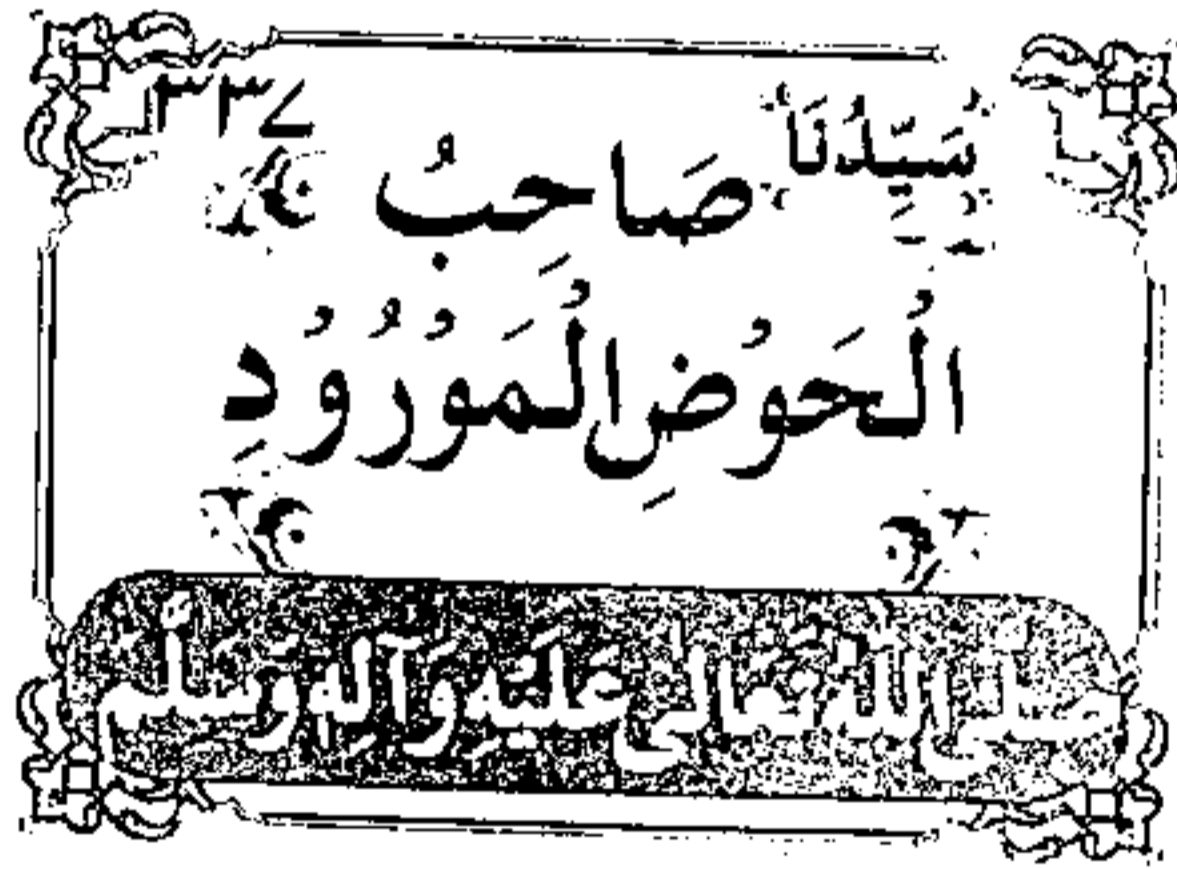 ۳۳۷
سَيِّدُنَا صَاحِبُ
الْحَوْضِ الْمَوْرُوْدِ
صَلَّى اللّٰهُ تَعَالٰى عَلَيْهِ وَآلِهٖ وَسَلَّمَ